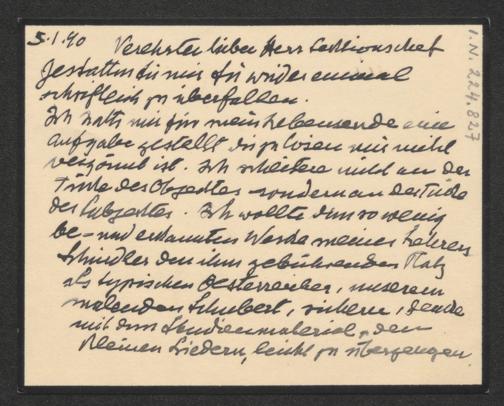 5.I.40 Verehrter lieber Herr Sektionschef
gestatten Sie mir Sie wieder einmal
schriftlich zu überfallen.
Ich hatte mir für mein Lebensende eine
Aufgabe gestellt die zu lösen mir nicht
vergönnt ist. Ich scheitere nicht an der
Tücke des Objektes sondern an der Tücke
des Subjektes. Ich wollte dem so wenig
be- und erkannten Werke meines Lehrers
Schindler den ihm gebührenden Platz
als typischen Oesterreicher, unserem
malenden Schubert, sichern, dachte
mit dem Studienmaterial, den
kleinen Liedern, leicht zu überzeugen
I.N. 224.827